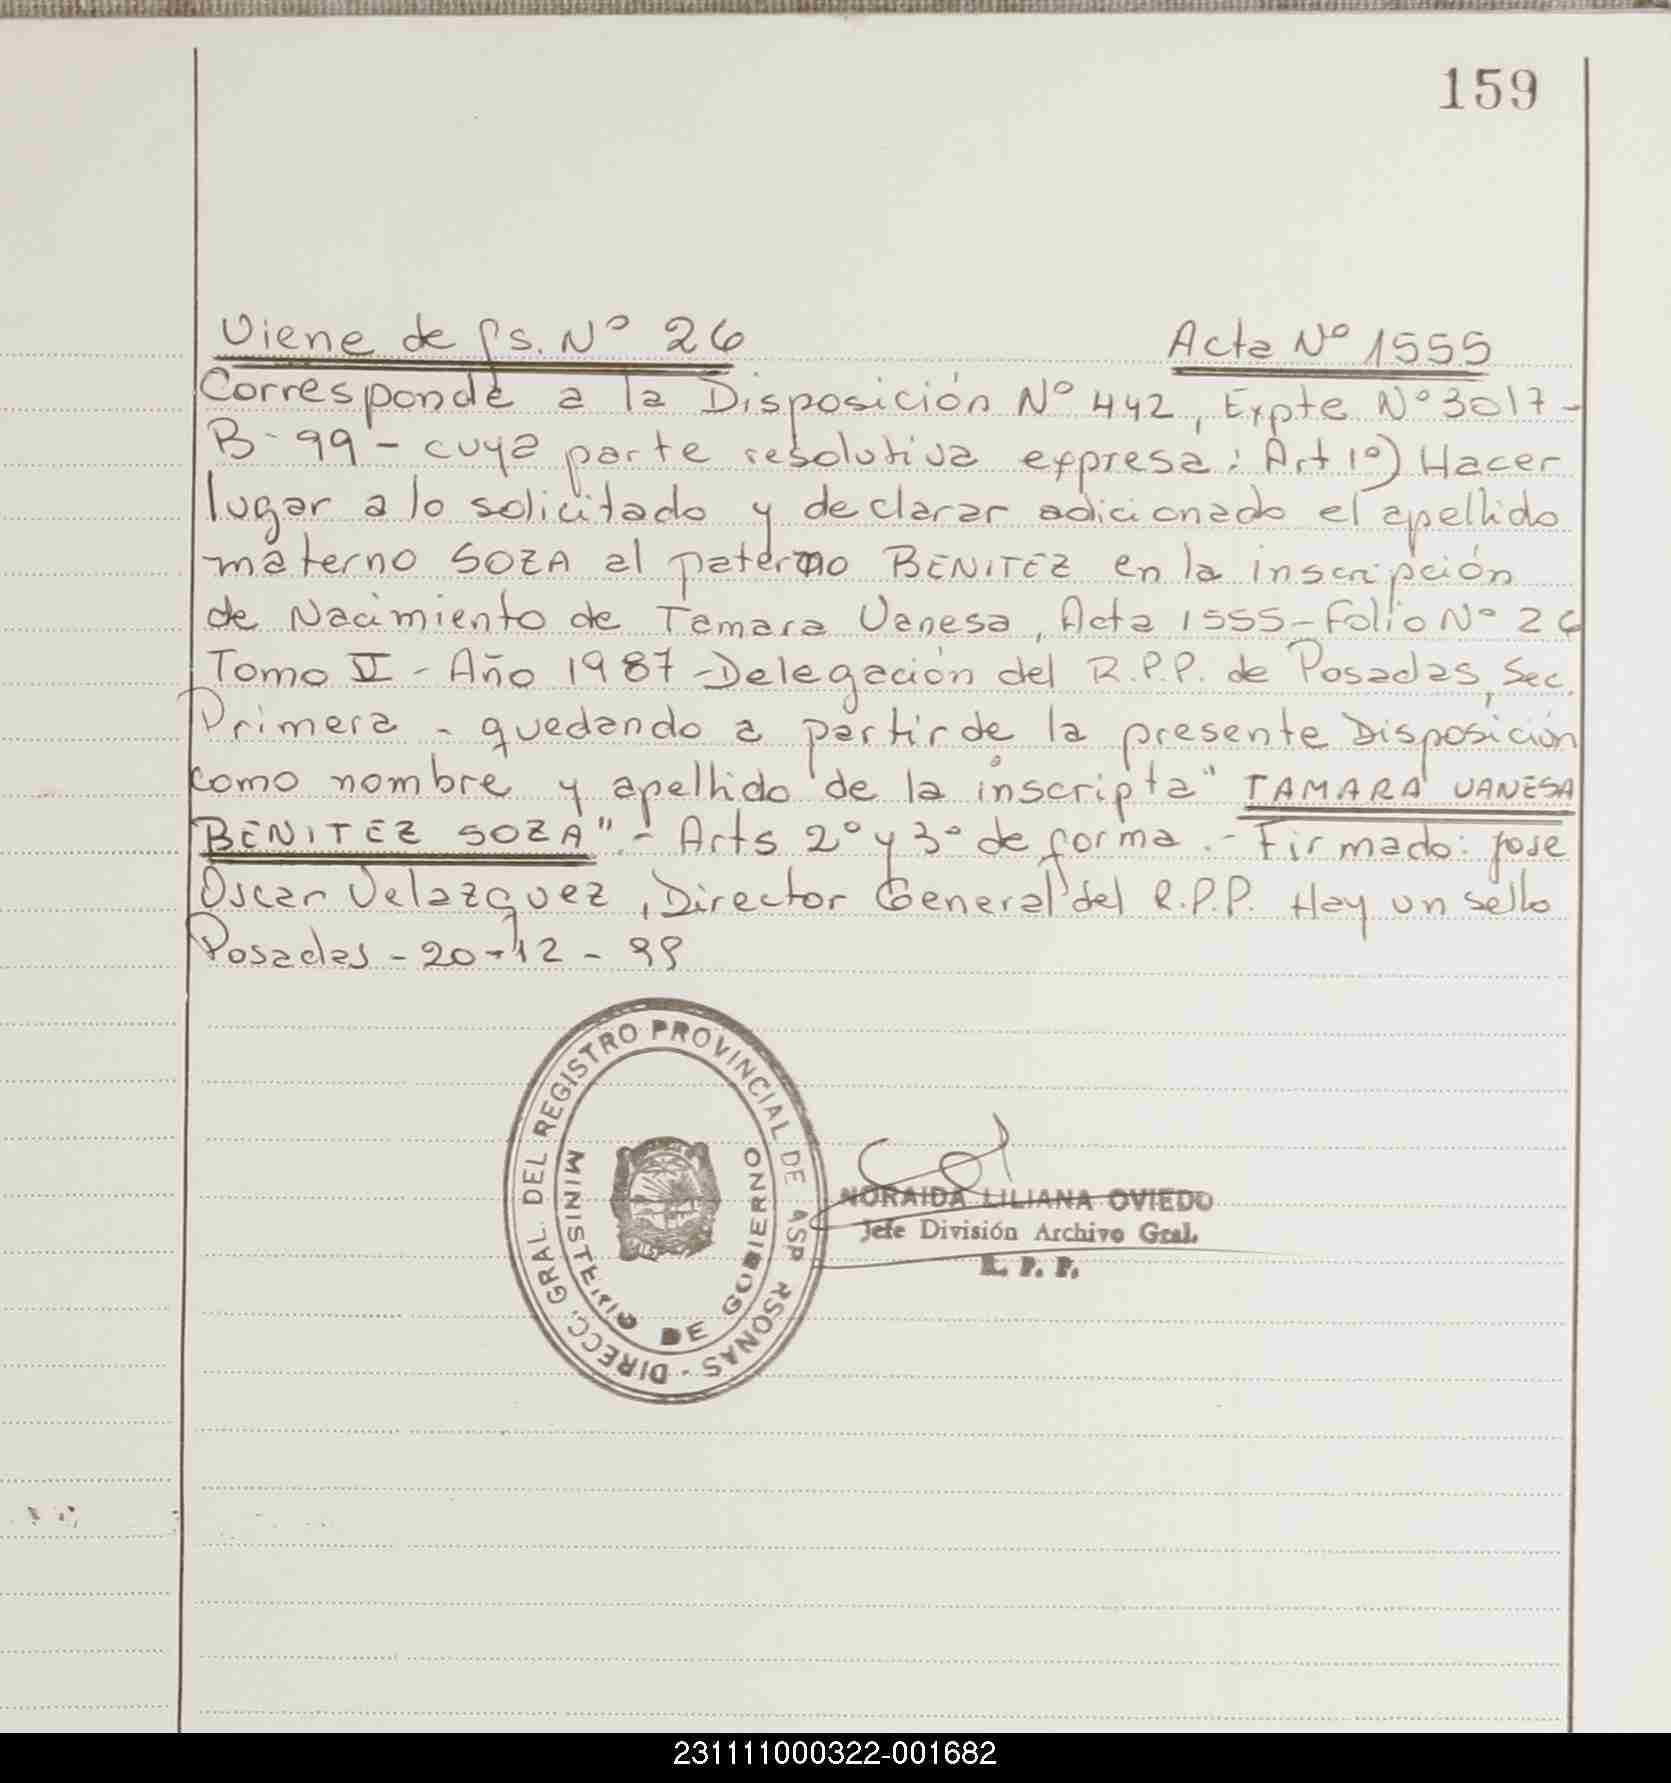 159
Viene de fs. Nº 26
Acta Nº 1555
Corresponde a la Disposición Nº 442, Expte Nº 3017-
B-99- cuya parte resolutiva expresa: Art 1º) Hacer
lugar a lo solicitado y declarar adicionado el apellido
materno SOZA al paterno BENITEZ en la inscripción
de Nacimiento de Tamara Vanesa, Acta 1555-Folio Nº 26
Tomo V - Año 1987 -Delegación del R.P.P. de Posadas, Sec.
Primera - quedando a partir de la presente Disposición
como nombre y apellido de la inscripta "TAMARA VANESA
BENITEZ SOZA".- Arts 2º y 3º de forma.- Firmado: Jose
Oscar Velazquez, Director General del R.P.P. Hay un sello
Posadas - 20-12-99
DIRECC. GRAL. DEL REGISTRO PROVINCIAL DE ASP RSONAS -
MINISTERIO DE GOBIERNO
NORAIDA LILIANA OVIEDO
Jefe División Archivo Gral.
R. P. P.
231111000322-001682